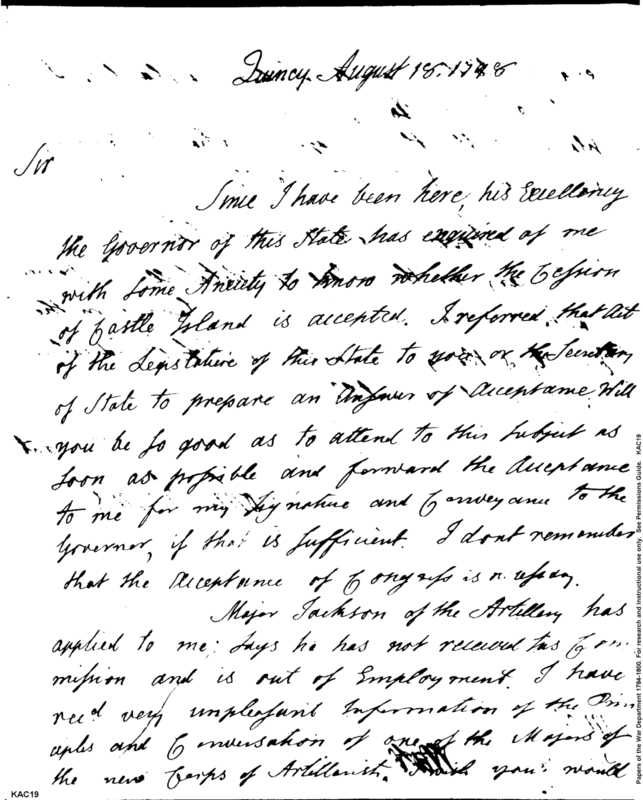 Quincy August 18. 1798
Sir
Since I have been here, his Excellency
the Governor of this State has enquired of me
with some Anxiety to know whether the Cession
of Castle Island is accepted. I referred that Act
of the Legislature of this State to you or the Secretary
of State to prepare an Answer of Acceptance Will
you be so good as to attend to this subject as
soon as possible and forward the Acceptance
to me for my signature and Conveyance to the
Governor, if that is sufficient. I dont remember
that the Acceptance of Congress is necessary.
Major Jackson of the Artillery has
applied to me: says he has not received his Com
mission and is out of Employment. I have
recd very unpleasant Information of the Prin
ciples and Conversation of one of the Majors of
the new Corps of Artillerists. I wish you would
KAC19
Papers of the War Department 1784-1800. For research and instructional use only. See Permissions Guide. KAC19